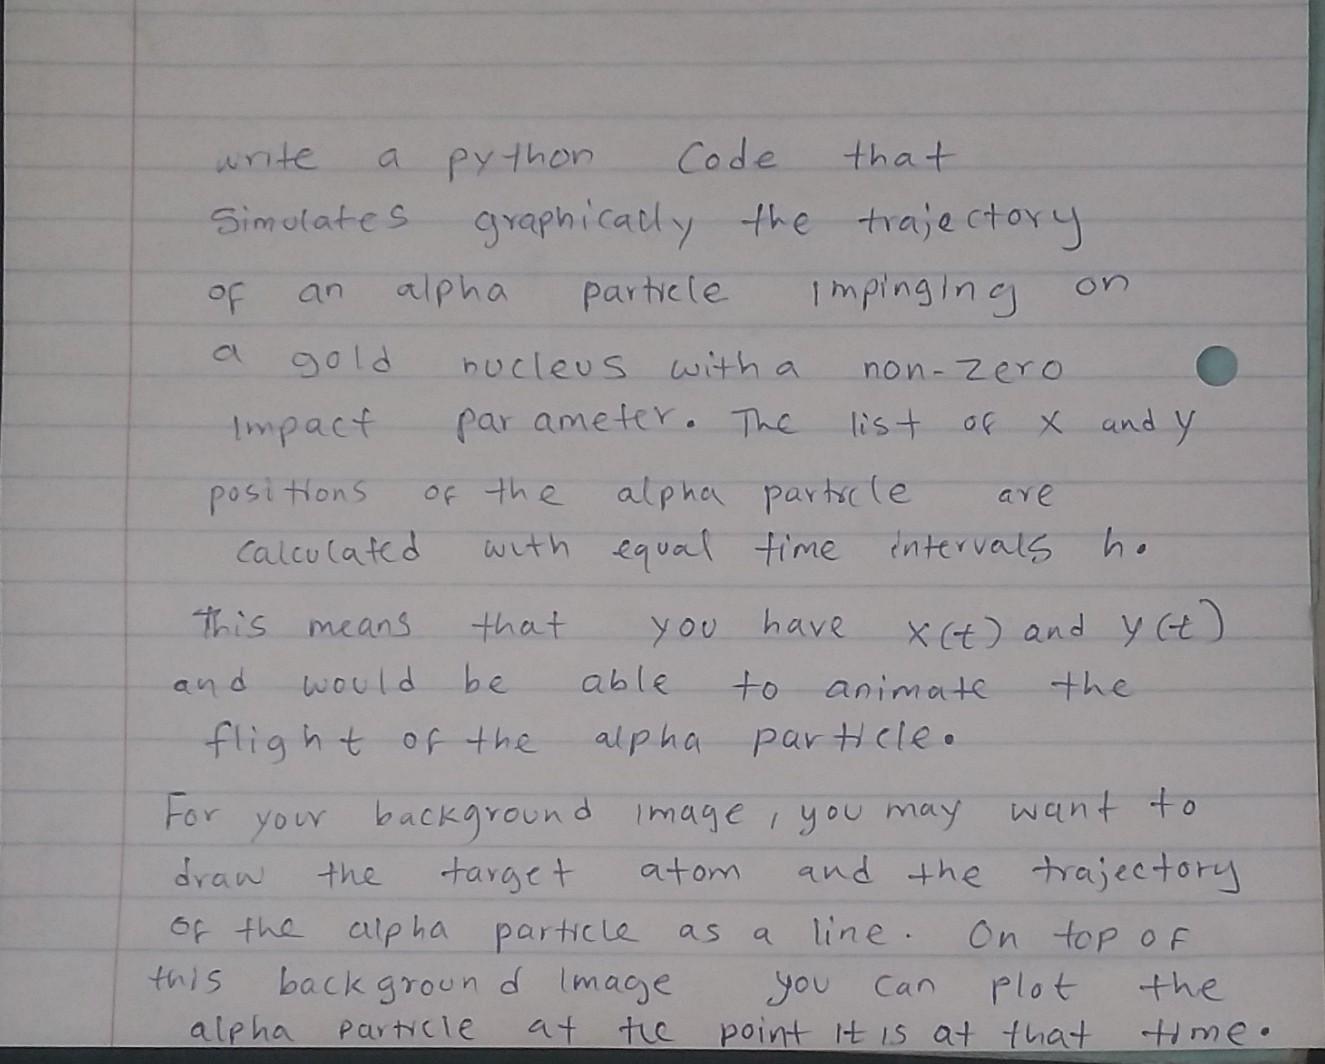 write a python Code that
Simulates graphically the trajectory
of an alpha particle impinging on
a gold nucleus with a non-zero
impact parameter. The list of x and y
positions of the alpha particle are
calculated with equal time intervals h.
This means that you have x(t) and y(t)
and would be able to animate the
flight of the alpha particle.
For your background image, you may want to
draw the target atom and the trajectory
of the alpha particle as a line. On top of
this background image you can plot the
alpha particle at the point it is at that time.